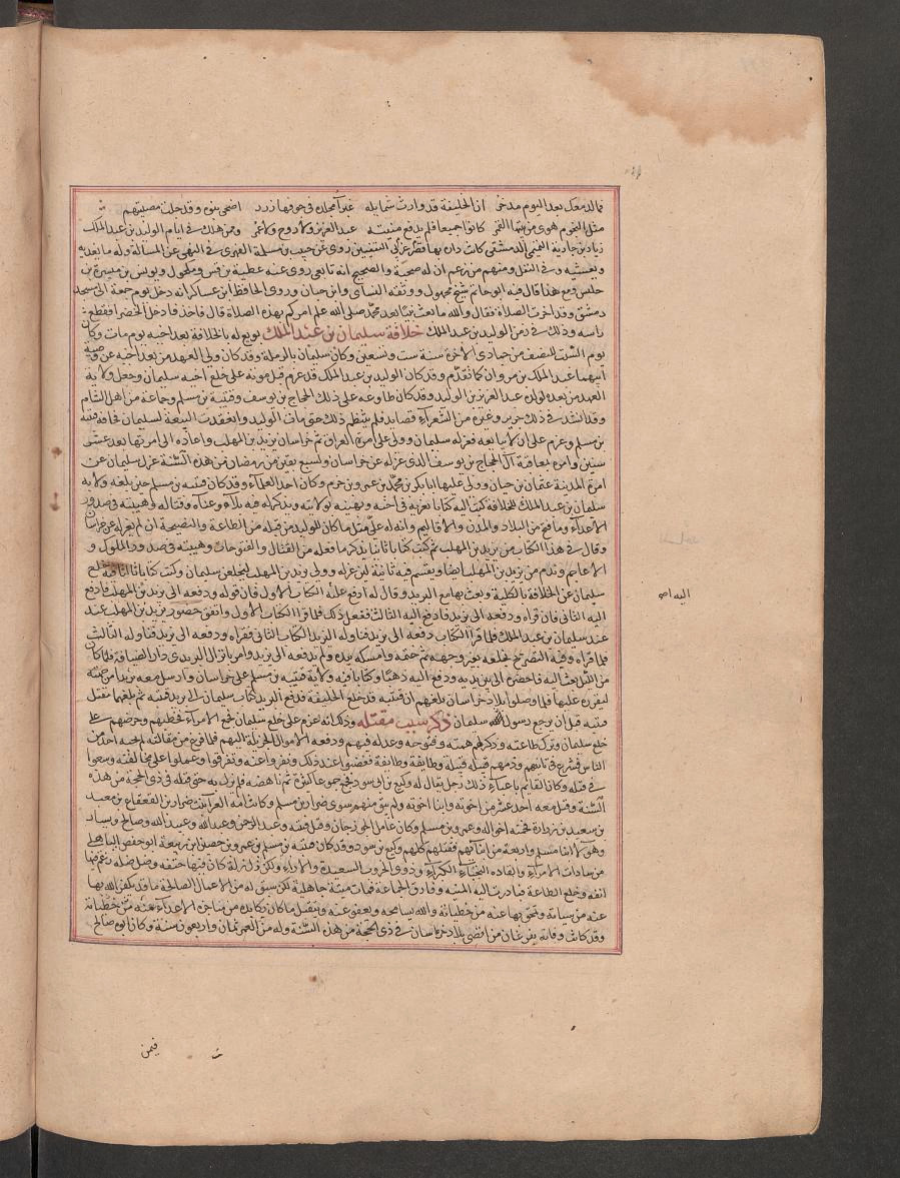 فما لدمعك بعد اليوم مدخر ان الخليفة قد وارت شمايله غبرآ ملحدة في جوفها زور اضحى بنوه وقد جلت مصيبتهم
مثل النجوم هوى من بينها القمر كانوا جميعا فلم يدفع منيته عبد العزيز ولا روح ولا عمر وممن هلك في ايام الوليد بن عبد الملك
زياد بن جارية التميمي الدمشقي كانت داره بها قصر الثقفيين روى عن حبيب بن مسلمة الفهري في النهي عن المسالة لمن له ما يغديه
ويعشيه وفي النفل ومنهم من زعم ان له صحبة والصحيح انه تابعي روى عنه عطية بن قيس ومكحول ويونس بن ميسرة بن
حلبس ومع هذا قال فيه ابو حاتم شيخ مجهول ووثقه النساي وابن حبان وروى الحافظ ابن عساكر انه دخل يوم جمعة الى مسجد
دمشق وقد اخرت الصلاة فقال والله ما بعث نبيا بعد محمد صلى الله عليه امركم بهذه الصلاة قال فاخذ فادخل الخضرا فقطع
راسه وذلك في زمن الوليد بن عبد الملك خلافة سليمان بن عبد الملك بويع له بالخلافة بعد اخيه يوم مات وكان
يوم السبت للنصف من جمادى الاخرة سنة ست وتسعين وكان سليمان بالرملة وقد كان ولي العهد من بعد اخيه عن وصية
ابيهما عبد الملك بن مروان كما تقدم وقد كان الوليد بن عبد الملك قد عزم قبل موته على خلع اخيه سليمان وجعل ولاية
العهد من بعد لولده عبد العزيز بن الوليد وقد كان طاوعه على ذلك الحجاج بن يوسف وقتيبة بن مسلم وجماعة من اهل الشام
وقد انشد في ذلك جرير وغيره من الشعرآء قصايد فلم ينتظم ذلك حتى مات الوليد وانعقدت البيعة لسليمان فخافه قتيبة
بن مسلم وعزم على ان لا يبايعه فعزله سليمان وولى على امرة العراق ثم خراسان يزيد بن المهلب واعاده الى امرتها بعد عشر
سنين وامره بمعاقبة آل الحجاج بن يوسف الذي عزله عن خراسان ولسبع بقين من رمضان من هذه السنة عزل سليمان عن
امرة المدينة عثمان بن حيان وولى عليها ابا بكر بن محمد بن عمرو بن حزم وكان احد العلماء وقد كان قتيبة بن مسلم حين بلغه ولاية
سليمان بن عبد الملك للخلافة كتب اليه كتابا يعزيه في اخيه ويهنيه بولايته ويذكر له فيه بلآءه وعنآءه وقتاله وهيبته في صدور
الاعدآء وما فتح من البلاد والمدن والاقاليم وانه له على مثل ما كان للوليد من قبله من الطاعة والنصيحة ان لم يعزله عن خراسان
وقال في هذا الكتاب من يزيد بن المهلب ثم كتب كتابا ثانيا يذكر ما فعله من القتال والفتوحات وهيبته في صدور الملوك و
الاعاجم ويذم من يزيد بن المهلب ايضا ويقسم فيه ثانية لين عزله وولى يزيد بن المهلب ليخلعن سليمان وكتب كتابا ثالثا فيه خلع
سليمان عن الخلافة بالكلية وبعث بها مع البريد وقال له ادفع اليه الكتاب الاول فان قراه ودفعه الى يزيد بن المهلب فادفع
اليه الثاني فان قراه ودفعه الى يزيد فادفع اليه الثالث ففعل ذلك فلما قرا الكتاب الاول واتفق حضور يزيد بن المهلب عند
عند سليمان بن عبد الملك فلما قرا الكتاب دفعه الى يزيد فناوله البريد الكتاب الثاني فقراه ودفعه الى يزيد فناوله الثالث
فلما قراه وفيه التصريح بخلعه تغير وجهه ثم ختمه وامسكه بيده ولم يدفعه الى يزيد وامر بانزال البريدي دار الضيافة فلما كان
من الليل بعث اليه فاحضر الى بين يديه ودفع اليه ذهبا وكتابا فيه ولاية قتيبة بن مسلم على خراسان وارسل معه بريدا من جهته
ليقرره عليها فلما وصلوا بلاد خراسان بلغهم ان قتيبة قد خلع الخليفة فدفع البريد كتاب سليمان الى بريد قتيبة ثم بلغهما مقتل
قتيبة قبل ان يرجع رسول سليمان ذكر سبب مقتله وذلك انه عزم على خلع سليمان فجمع الامرآء فخطبهم وحرضهم على
خلع سليمان وترك طاعته وذكر لهم همته وفتوحه وعدله فيهم ودفعه الاموال الجزيلة اليهم فلما فرغ من مقالته لم يجبه احد من
الناس فشرع في تانيبهم وذمهم قبيلة قبيلة وطايفة وطايفة فغضبوا عند ذلك ونفروا عنه وتفرقوا وعملوا على مخالفته وسعوا
في قتله وكان القائم باعباء ذلك رجل يقال له وكيع بن ابي سود فجمع جموعا كثيرة ثم ناهضه فلم يزل به حتى قتله في ذي الحجة من هذه
السنة وقتل معه احد عشر من اخوته وابنا اخوته ولم يبق منهم سوى ضرار بن مسلم وكانت امه الغرآ بنت ضرار بن القعقاع بن معبد
بن سعيد بن زرارة فحمته اخواله وعمرو بن مسلم وكان عامل الجوزجان وقتل قتيبة وعبد الرحمن وعبد الله وعبيد الله وصالح ويسار
وهولاء ابنا مسلم واربعة من ابنآئهم فقتلهم كلهم وكيع بن سود وقد كان قتيبة بن مسلم بن عمرو بن حصين بن ربيعة ابو حفص الباهلي
من سادات الامرآء والقاده النجبآء الكبرآء وذوي الحروب السعيدة والاراء ولكن ذل زلة كان فيها حتفه وضل ضلة رغم فيها
انفه وخلع الطاعة فبادرت اليه المنية وفارق الجماعة فمات ميتة جاهلية لكن سبق له من الاعمال الصالحة ما قد يكفر الله بها
عنه من سياته ويمحو بها عنه من خطيئاته والله يسامحه ويعفو عنه ويتقبل ما كان يكابده من مناجزة الاعدآء
وقد كانت وفاته بفرغانة من اقصى بلاد خراسان في ذي الحجة من هذه السنة وله من العمر ثمان واربعون سنة وكان ابوه صالح
فيمن